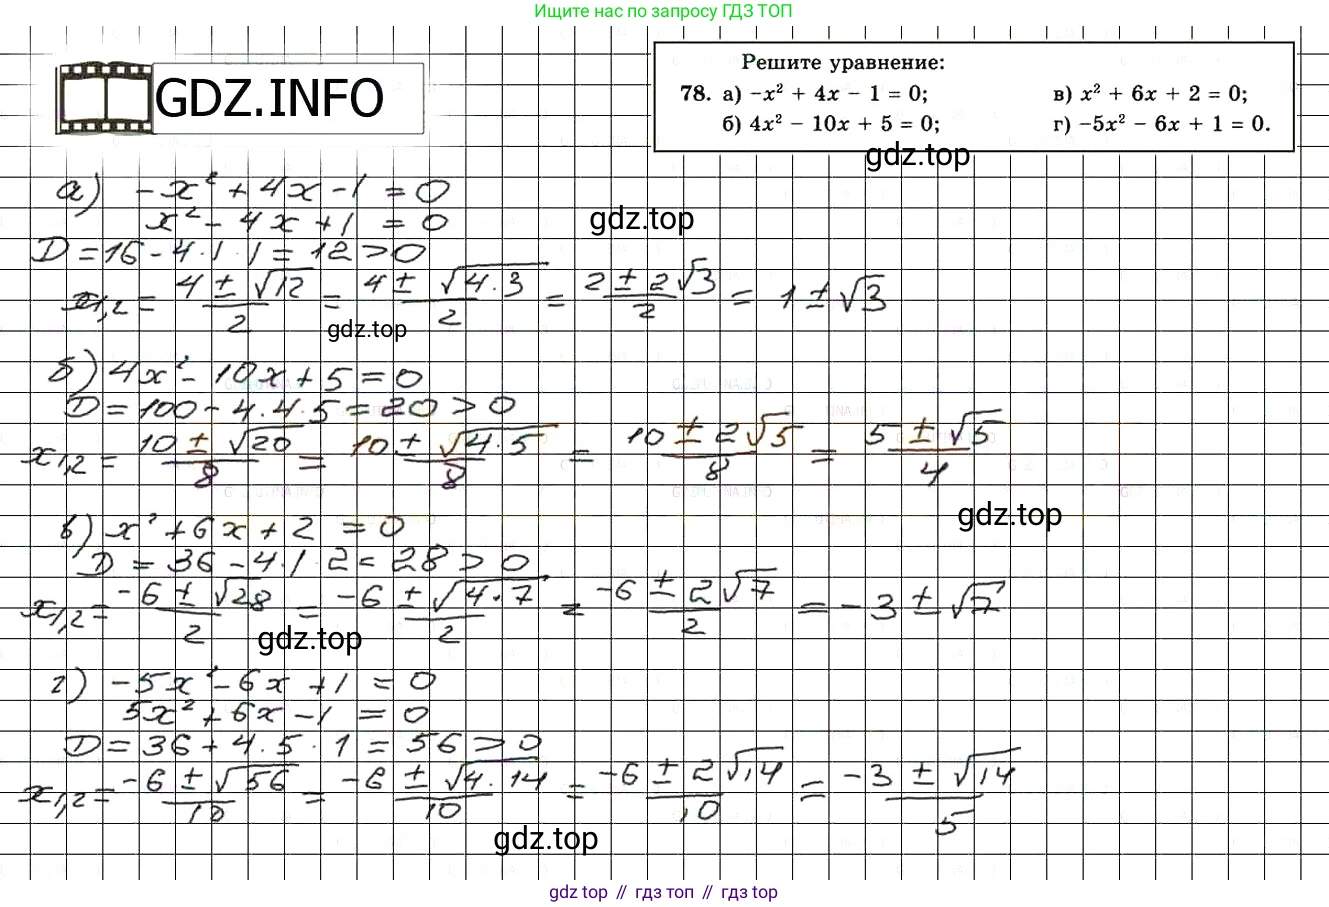 Ищите нас по запросу ГДЗ ТОП
GDZ.INFO
Решите уравнение:
78. а) -x² + 4x - 1 = 0; в) x² + 6x + 2 = 0;
б) 4x² - 10x + 5 = 0; г) -5x² - 6x + 1 = 0.
gdz.top
а) -x² + 4x - 1 = 0
x² - 4x + 1 = 0
gdz.top
D = 16 - 4·1·1 = 12 > 0
x1,2 = (4 ± √12)/2 = (4 ± √(4·3))/2 = (2 ± 2√3)/2 = 1 ± √3
gdz.top
б) 4x² - 10x + 5 = 0
D = 100 - 4·4·5 = 20 > 0
x1,2 = (10 ± √20)/8 = (10 ± √(4·5))/8 = (10 ± 2√5)/8 = (5 ± √5)/4
gdz.top
в) x² + 6x + 2 = 0
D = 36 - 4·1·2 = 28 > 0
x1,2 = (-6 ± √28)/2 = (-6 ± √(4·7))/2 = (-6 ± 2√7)/2 = -3 ± √7
gdz.top
г) -5x² - 6x + 1 = 0
5x² + 6x - 1 = 0
D = 36 + 4·5·1 = 56 > 0
x1,2 = (-6 ± √56)/10 = (-6 ± √(4·14))/10 = (-6 ± 2√14)/10 = (-3 ± √14)/5
gdz.top
gdz top // гдз топ // gdz top